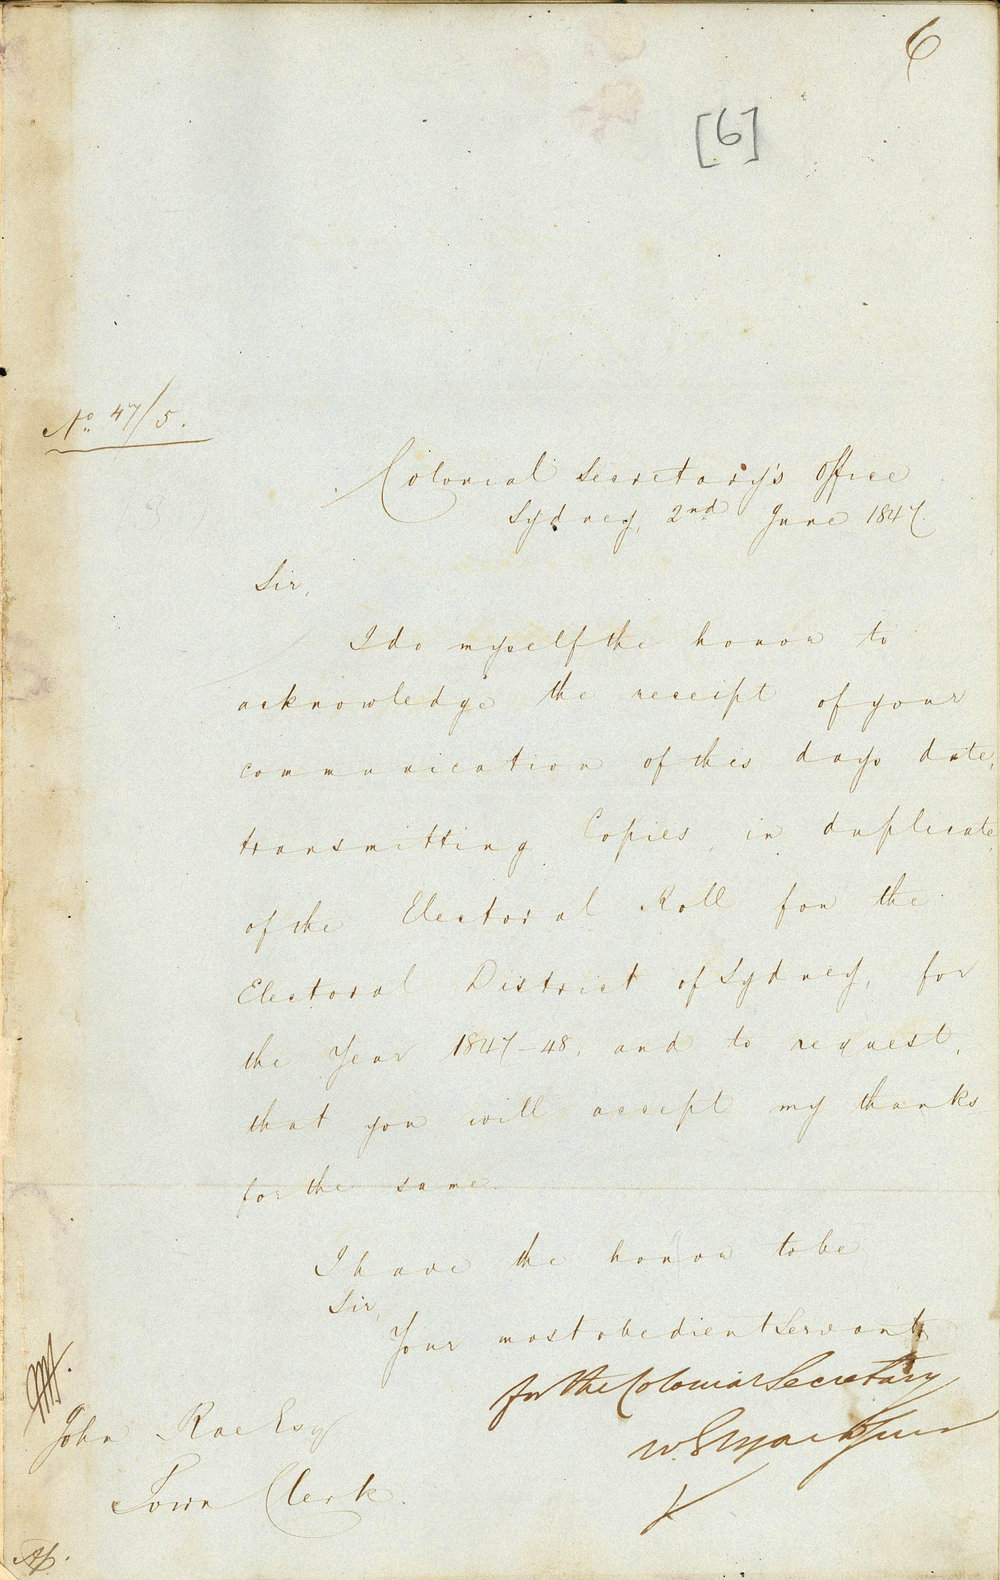 6
[6]
No. 47/5.
Colonial Secretary's Office
Sydney, 2nd June 1847.
Sir,
I do myself the honor to
acknowledge the receipt of your
communication of this days date,
transmitting Copies, in duplicate,
of the Electoral Roll for the
Electoral District of Sydney, for
the Year 1847-48, and to request,
that you will accept my thanks
for the same.
I have the honor to be
Sir,
Your most obedient Servant
for the Colonial Secretary
W.
John Rae Esq
Town Clerk.